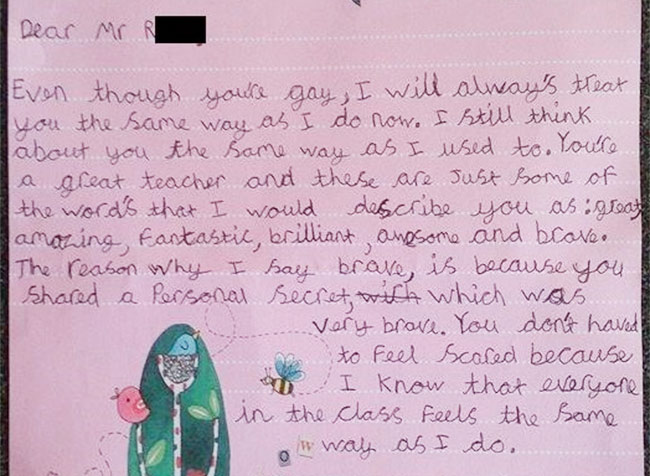 Dear Mr R
Even though you're gay, I will alway's treat
you the same way as I do now. I still think
about you the same way as I used to. You're
a great teacher and these are just some of
the word's that I would describe you as: great
amazing, fantastic, brilliant, awesome and brave.
The reason why I say brave, is because you
shared a Personal secret, with which was
very brave. You don't haved
to feel scared because
I know that everyone
in the class feels the same
way as I do.
o w